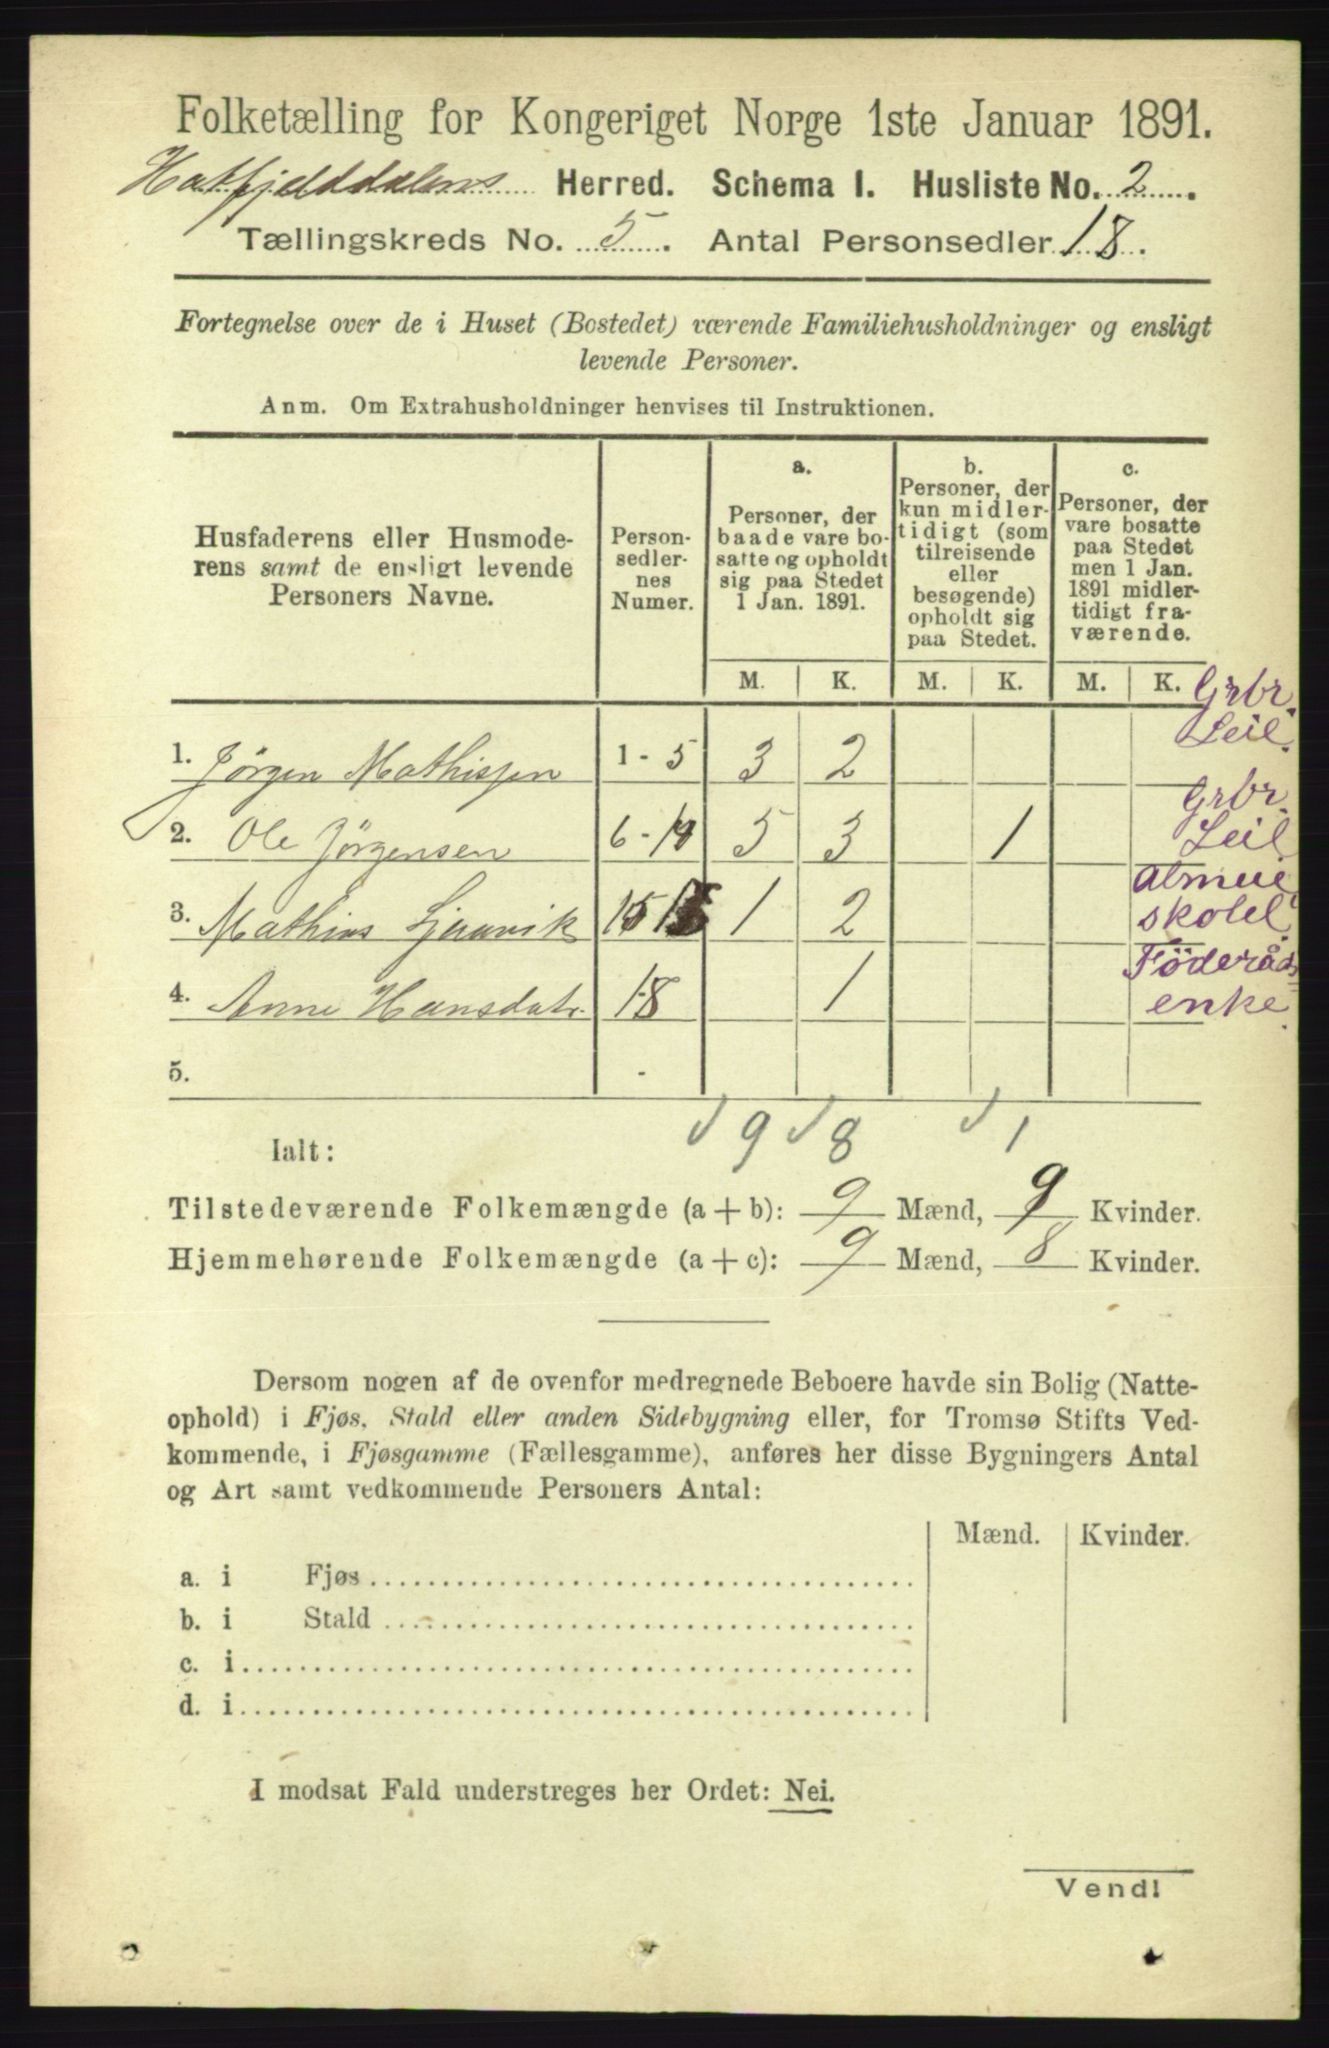 Folketælling for Kongeriget Norge 1ste Januar 1891.
Hatfjelddalens Herred. Schema I. Husliste No. 2.
Tællingskreds No. 5. Antal Personsedler 18.
Fortegnelse over de i Huset (Bostedet) værende Familiehusholdninger og ensligt
levende Personer.
Anm. Om Extrahusholdninger henvises til Instruktionen.
Husfaderens eller Husmode-
rens samt de ensligt levende
Personers Navne.
Person-
sedler-
nes
Numer.
a.
Personer, der
baade vare bo-
satte og opholdt
sig paa Stedet
1 Jan. 1891.
b.
Personer, der
kun midler-
tidigt (som
tilreisende
eller
besøgende)
opholdt sig
paa Stedet.
c.
Personer, der
vare bosatte
paa Stedet
men 1 Jan.
1891 midler-
tidigt fra-
værende.
M. K. M. K. M. K.
1. Jørgen Mathissen 1-5 3 2 Grbr. Leil.
2. Ole Jørgensen 6-14 5 3 1 Grbr. Leil.
3. Mathias 15 1 2 almue skolel.
4. Anne Hansdatr. 18 1 Föderåds enke.
5. -
Ialt: 9 8 1
Tilstedeværende Folkemængde (a + b): 9 Mænd, 9 Kvinder.
Hjemmehørende Folkemængde (a + c): 9 Mænd, 8 Kvinder.
Dersom nogen af de ovenfor medregnede Beboere havde sin Bolig (Natte-
ophold) i Fjøs, Stald eller anden Sidebygning eller, for Tromsø Stifts Ved-
kommende, i Fjøsgamme (Fællesgamme), anføres her disse Bygningers Antal
og Art samt vedkommende Personers Antal:
Mænd. Kvinder.
a. i Fjøs
b. i Stald
c. i
d. i
I modsat Fald understreges her Ordet: Nei.
Vend!